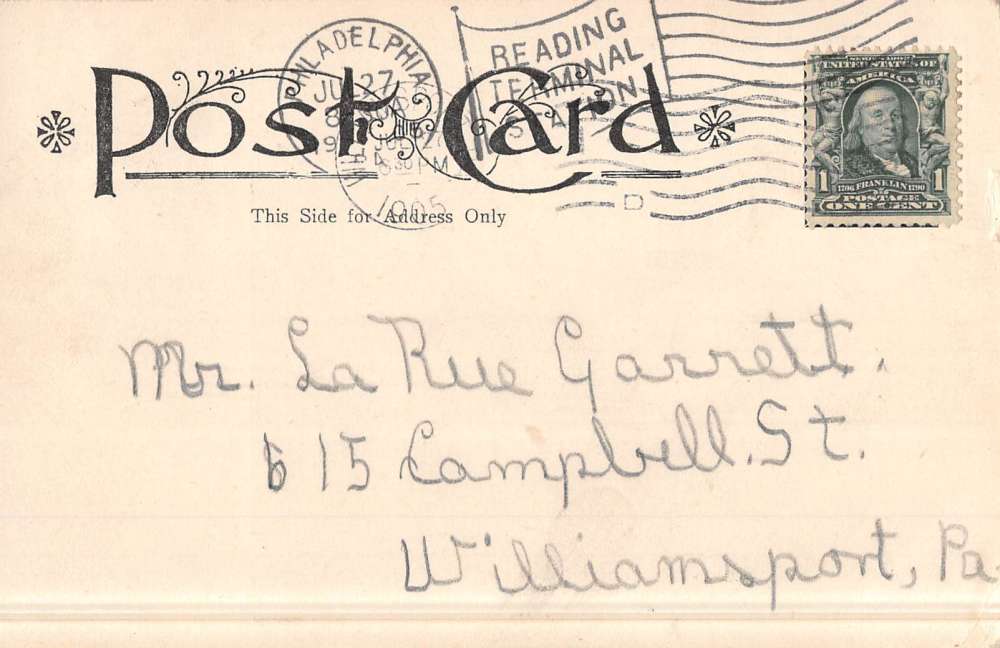 PHILADELPHIA
JUL 27
1905
READING
TERMINAL
STATION
D
Post Card
This Side for Address Only
SERIES 1902
UNITED STATES OF
AMERICA
1 1
1706 FRANKLIN 1790
POSTAGE
ONE CENT
Mr. La Rue Garrett.
615 Campbell. St.
Williamsport, Pa